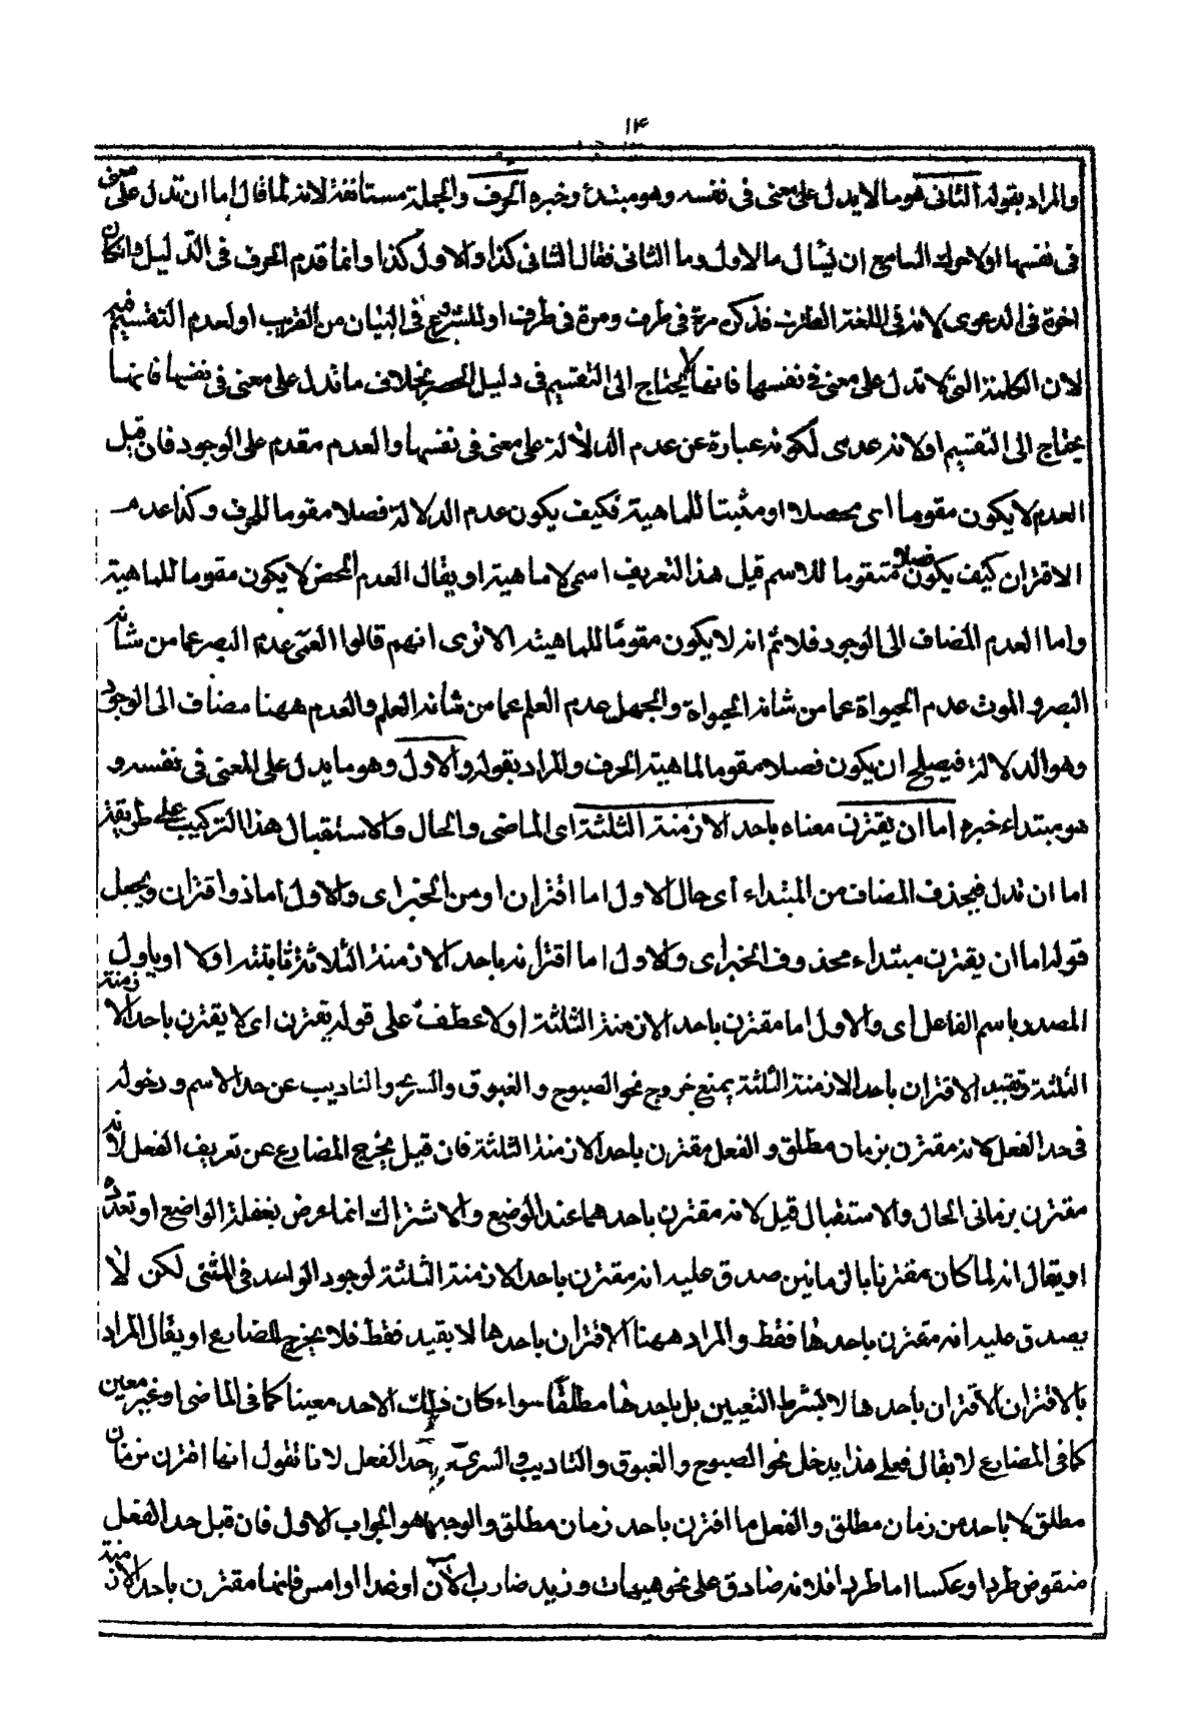 ١٤
والمراد بقوله الثانى هو ما لا يدل على معنى فى نفسه وهو مبتدأ وخبره الحرف والجملة مستأنفة لانه لما قال اما ان تدل على معنى
فى نفسها اولا حرك السامع ان يسأل ما الاول وما الثانى فقال الثانى كذا والاول كذا وانما قدم الحرف فى الدليل وانكان
اخره فى الدعوى لانه فى اللغة الطرف فذكره مرة فى طرف ومرة فى طرف او للشروع فى البيان من القريب او لعدم التقسيم فيه
لان الكلمة التى لا تدل على معنى فى نفسها فانها لا يحتاج الى التقسيم فى دليل الحصر بخلاف ما تدل على معنى فى نفسها فانها
يحتاج الى التقسيم اولانه عدمى لكونه عبارة عن عدم الدلالة على معنى فى نفسها والعدم مقدم على الوجود فان قيل
العدم لا يكون مقوما اى محصلا او مثبتا للماهية فكيف يكون عدم الدلالة فصلا مقوما للحرف وكذا عدم
الاقتران كيف يكون فصلا متقوما للاسم قيل هذا التعريف اسمى لا ماهية او يقال العدم المحض لا يكون مقوما للماهية
واما العدم المضاف الى الوجود فلا ثم انه لا يكون مقومًا للماهية الا ترى انهم قالوا العمى عدم البصر عما من شانه
البصر والموت عدم الحيواة عما من شانه الحيواة والجهل عدم العلم عما من شأنه العلم والعدم ههنا مضاف الى الوجود
وهو الدلالة فيصلح ان يكون فصلا مقوما لماهية الحرف والمراد بقوله والاول وهو ما يدل على المعنى فى نفسه و
هو مبتداء خبره اما ان يقترن معناه باحد الازمنة الثلثة اى الماضى والحال والاستقبال هذا التركيب على طريقة
اما ان تدل فيحذف المضاف من المبتداء اى حال الاول اما اقتران او من الخبر اى والاول اما ذو اقتران ويجعل
قوله اما ان يقترن مبتداء محذوف الخبر اى والاول اما اقترانه باحد الازمنة الثلاثة ثابتة اولا او ياول
المصدر باسم الفاعل اى والاول اما مقترن باحد الازمنة الثلثة اولا عطف على قوله يقترن اى لا يقترن باحد الازمنة
الثلثة وتقييد الاقتران باحد الازمنة الثلثة يمنع خروج نحو الصبوح والغبوق والسرى والتاديب عن حد الاسم ودخوله
فى حد الفعل لانه مقترن بزمان مطلق والفعل مقترن باحد الازمنة الثلثة فان قيل يخرج المضارع عن تعريف الفعل لانه
مقترن بزمانى الحال والاستقبال قيل لانه مقترن باحدهما عند الوضع والاشتراك انما عرض بغفلة الواضع او تعدده
او يقال انه لما كان مقترنا بالزمانين صدق عليه انه مقترن باحد الازمنة الثلثة لوجود الواحد فى المثنى لكن لا
يصدق عليه انه مقترن باحدها فقط والمراد ههنا الاقتران باحدها لا بقيد فقط فلا يخرج المضارع او يقال المراد
بالاقتران الاقتران باحدها لا بشرط التعيين بل باحدها مطلقًا سواء كان ذلك الاحد معينا كما فى الماضى او غير معين
كما فى المضارع لا يقال فعلى هذا يدخل نحو الصبوح والغبوق والتاديب والسرى حد الفعل لانا نقول انها اقترن بزمان
مطلق لا باحد من زمان مطلق والفعل ما اقترن باحد زمان مطلق والوجه هو الجواب الاول فان قيل حد الفعل
منقوض طردا وعكسا اما طردا فلانه صادق على نحو هيهات وزيد ضارب الآن او غدا او امس فانها مقترن باحد الازمنة